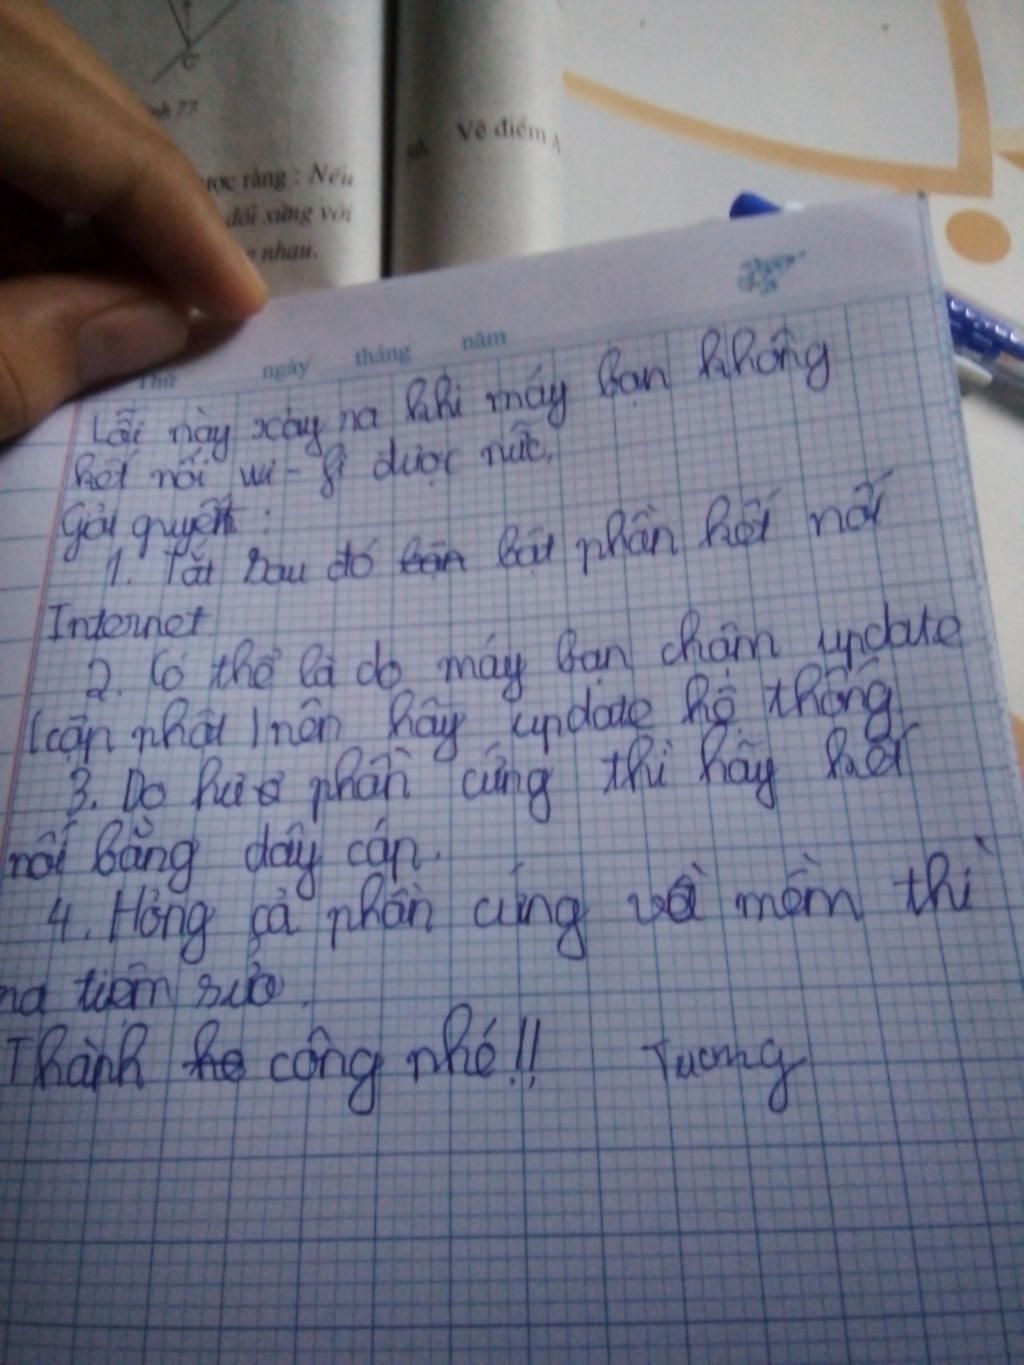 C
nh 77
ược rằng : Nếu
đối xứng với
nhau.
Vẽ điểm A
Thứ ngày tháng năm
Lỗi này xảy ra khi máy bạn không
kết nối wi-fi được nữa.
Giải quyết :
1. Tắt sau đó bật phần kết nối
Internet
2. Có thể là do máy bạn chậm update
(cập nhật) nên hãy update hệ thống
3. Do hư phần cứng thì hãy kết
nối bằng dây cáp.
4. Hỏng cả phần cứng và mềm thì
ra tiệm sửa.
Thành công nhé!! Tương